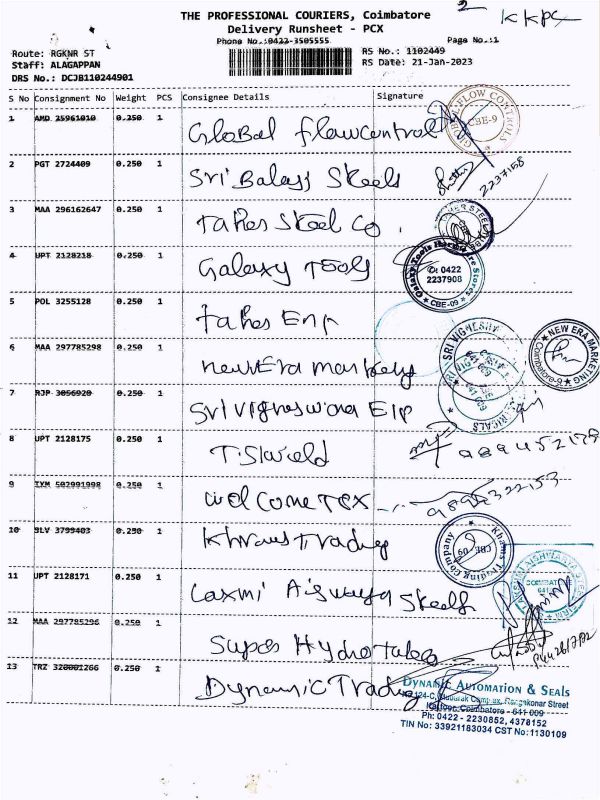 THE PROFESSIONAL COURIERS, Coimbatore
2
KKPC
Delivery Runsheet - PCX
Phone No.:0422-3505555
Page No.:1
Route: RGKNR ST
RS No.: 1102449
Staff: ALAGAPPAN
RS Date: 21-Jan-2023
DRS No.: DCJB110244901
S No Consignment No Weight PCS Consignee Details Signature
1 AMD 25961010 0.250 1 Global flowcontrol
GLOBAL FLOW CONTROLS
CBE-9
2 PGT 2724409 0.250 1 Sri Balaji Steels
2237158
3 MAA 296162647 0.250 1 Taher Steel Co.
4 UPT 2128218 0.250 1 Galaxy Tools
Galaxy Tools Hardware Stores
0422
2237908
CBE-09
5 POL 3255128 0.250 1 Taher Enp
6 MAA 297785298 0.250 1 New Era Markety
NEW ERA MARKETING
Coimbatore-9
7 RJP 3056920 0.250 1 Sri Vigneswara Enp
SRI VIGNESHW
TRICALS
8 UPT 2128175 0.250 1 T. Sweld
9894452179
9 TXM 502991998 0.250 1 Welcome Tex
10 SLV 3799403 0.250 1 Khrams Trading
Khams Trading Company
CBE-09
11 UPT 2128171 0.250 1 Laxmi Aiswarya Steels
COIMBATORE
641
12 MAA 297785296 0.250 1 Super Hydrotubes
13 TRZ 320001266 0.250 1 Dynamic Trading
DYNAMIC AUTOMATION & SEALS
Coimbatore - 641 009
Ph: 0422 - 2230852, 4378152
TIN No: 33921183034 CST No:1130109